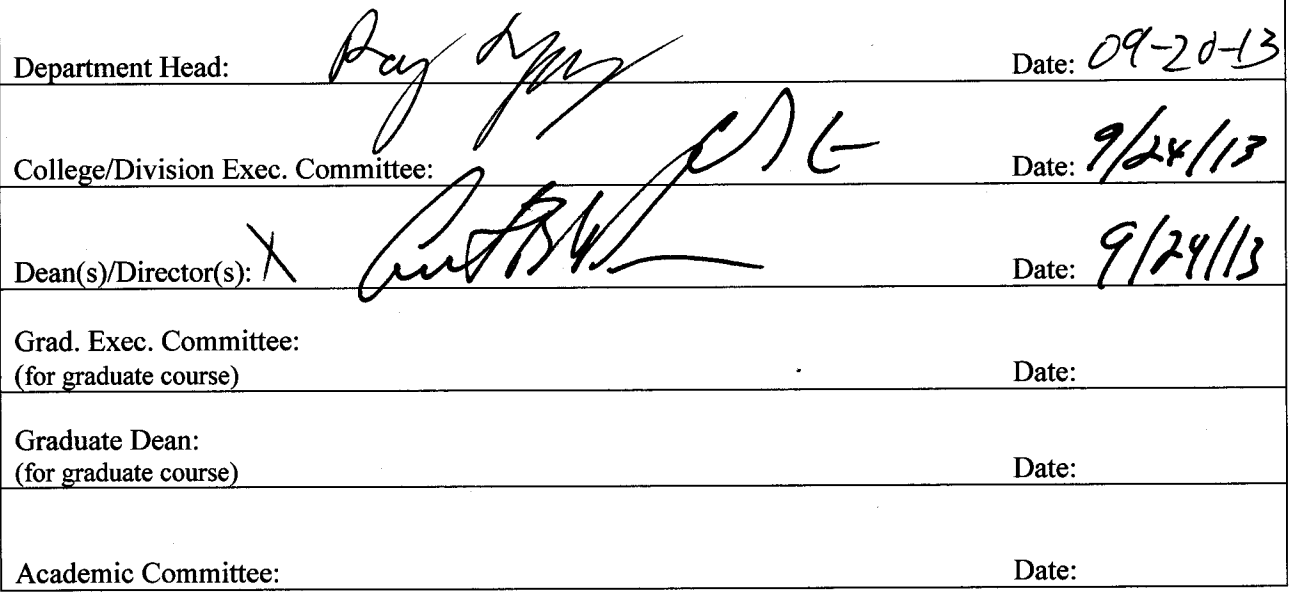 Department Head: Date: 09-20-13
College/Division Exec. Committee: Date: 9/24/13
Dean(s)/Director(s): X Date: 9/24/13
Grad. Exec. Committee:
(for graduate course) Date:
Graduate Dean:
(for graduate course) Date:
Academic Committee: Date: